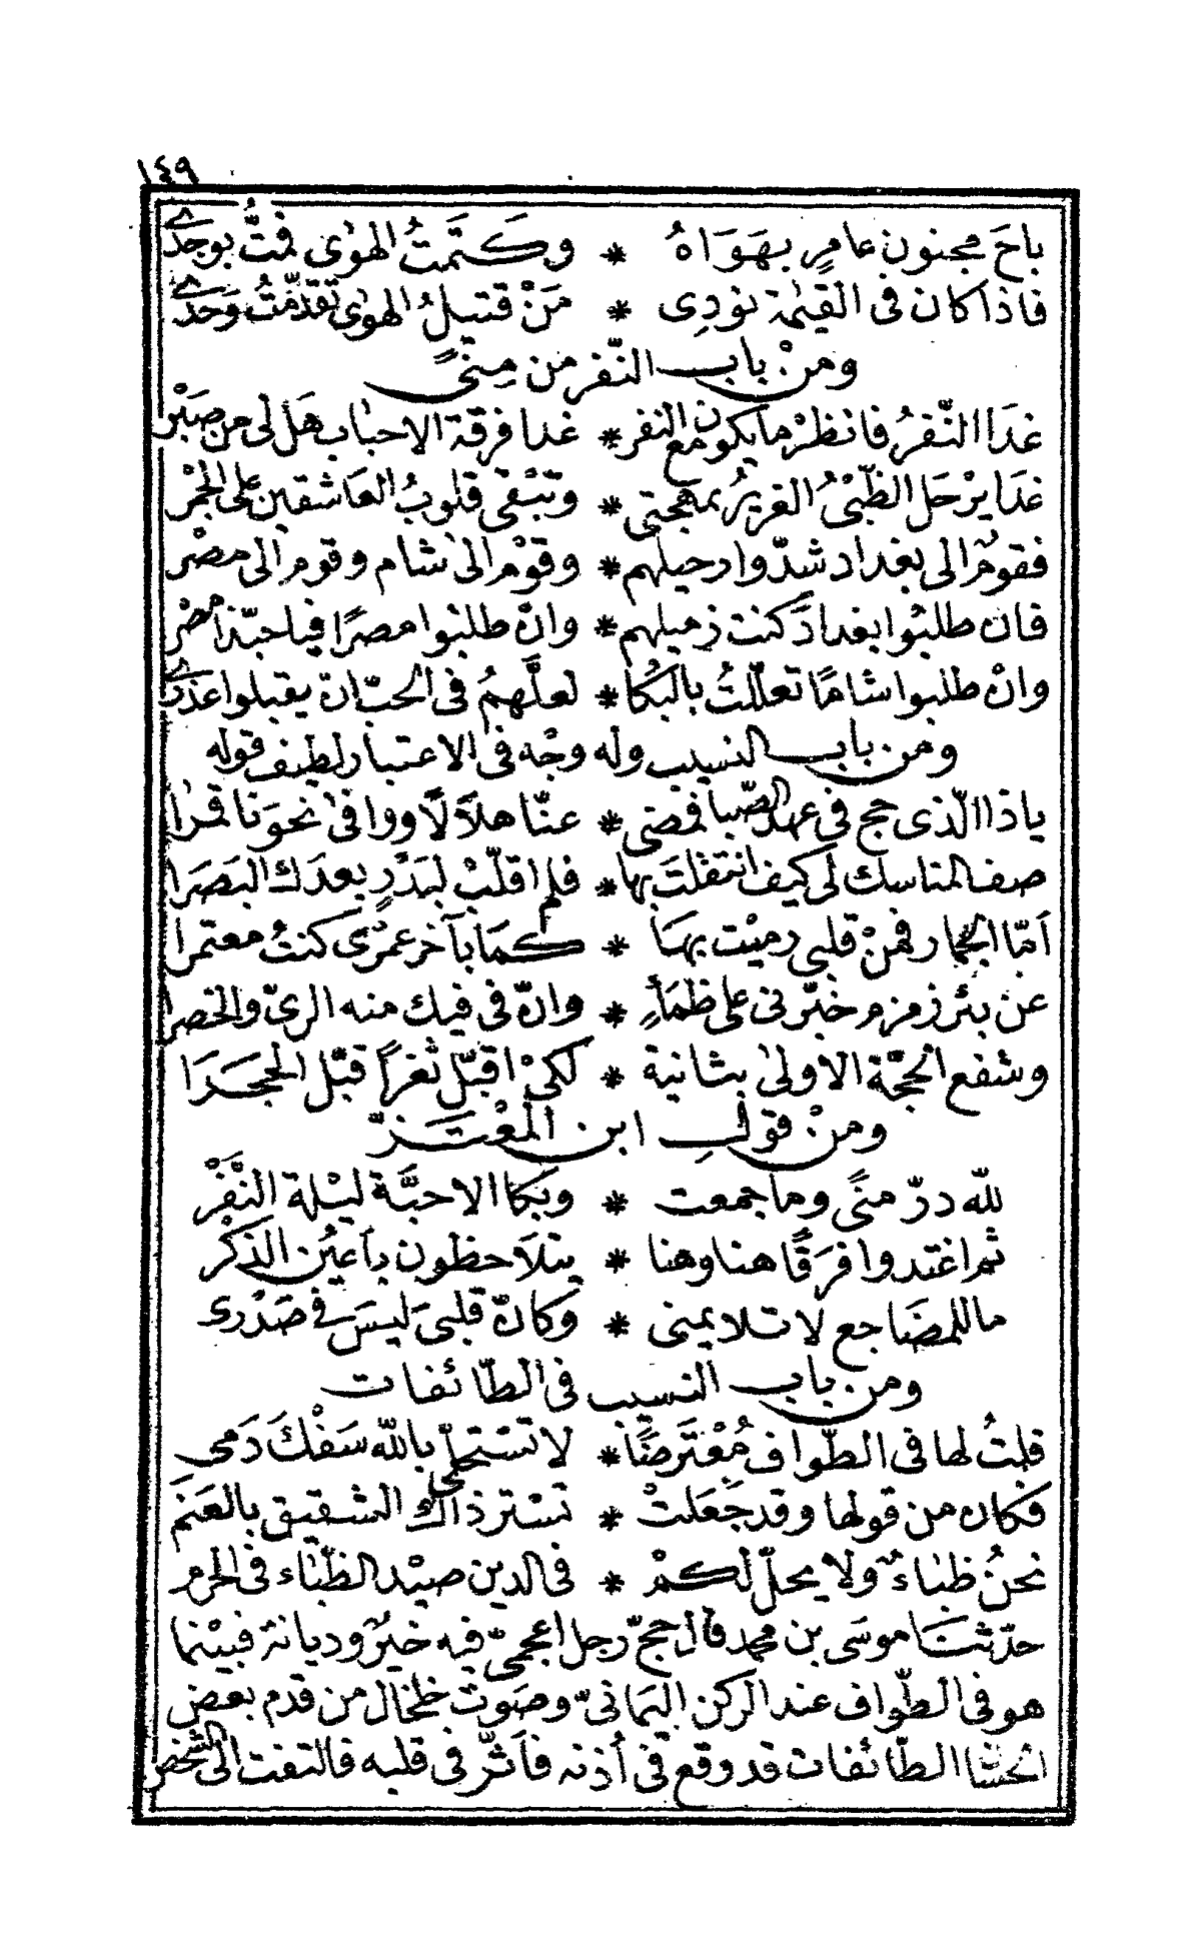 ١٤٩
باحَ مجنون عامرٍ بهَوَاهُ * وكتَمتُ الهوٰى فمتُّ بوجدى
فاذا كان فى القيٰمة نودِى * مَنْ قتيلُ الهوٰى تقدّمتُ وَحدى
ومنْ باب النّفر من مِنىً
غدَا النّفرُ فانظرْ ما يكون مع النفر * غدا فرقة الاحباب هَل لى من صَبْر
غدَا يرْحَل الظّبْىُ الغريرُ بمهجتى * وتبْقى قلوبُ العَاشقين على الجمْر
فقومٌ الى بغداد شدّوا رحيلهم * وقوْم الى شام وقوم الى مصْر
فان طلبُوا بغدادَ كنت زميلهم * وانْ طلبوا مصرًا فياحبّذا مصْر
وانْ طلبوا شامًا تعلّلتُ بالبُكا * لعلَّهمُ فى الحبّ ان يقبلوا عذرى
ومن باب النسيب وله وجْه فى الاعتبار لطيف قوله
ياذا الّذى حج فى عهد الصّبا فمضى * عنّا هلاَلاً ووافىٰ نحوَنا قمرا
صف المناسك لى كيف انتقلتَ بها * فلم اقلّبْ لبَدْرٍ بعدَك البَصَرا
اَمّا الجمار فمنْ قلبى رميْت بهَا * كمَا بآخر عمرى كنتُ معتمرا
عن بئر زمزم خبّرنى على ظمَأٍ * وانّ فى فيك منه الرىّ والخصرا
وشفع الحجّة الاولىٰ بثانية * لكىْ اقبّل ثغراً قبّل الحجَرَا
ومنْ قول ابن المعْتَزّ
للّه درّ منىً وما جمعت * وبكا الاحبَّة ليْلة النَّفْر
ثم اغتدوا فرَقًا هنا وهنا * يتلاَحظون بأعيُن الذكر
ما للمضَاجع لا تلايمنى * وكانّ قلبىَ ليسَ فى صَدْرى
ومن باب النسيب فى الطّائفات
قلتُ لها فى الطّواف مُعْتَرضًا * لا تسْتحلّى باللّه سَفْكَ دَمى
فكان من قولها وقد جَعَلتْ * تسْتر ذاك الشقيق بالعَنَم
نحنُ ظباءٌ ولا يحلّ لكمْ * فى الدين صيْد الظّبَاء فى الحرم
حدّثنَا موسَى بن محمد قال حجّ رجل اعجمىّ فيه خيرٌ وديانة فبيْنما
هو فى الطّواف عند الركن اليمَانىّ وصَوت خلخال من قدم بعض
الحسَّنا الطّائفات قد وقع فى أذنه فاَثرّ فى قلبه فالتفت الى الشخص